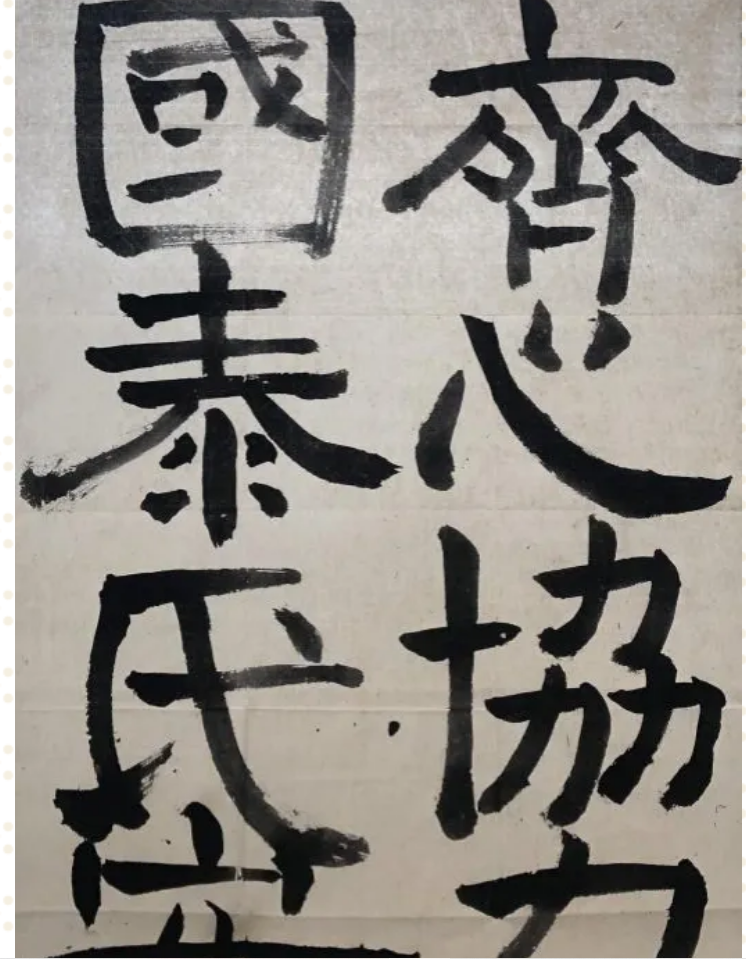 齊心協力
國泰民安